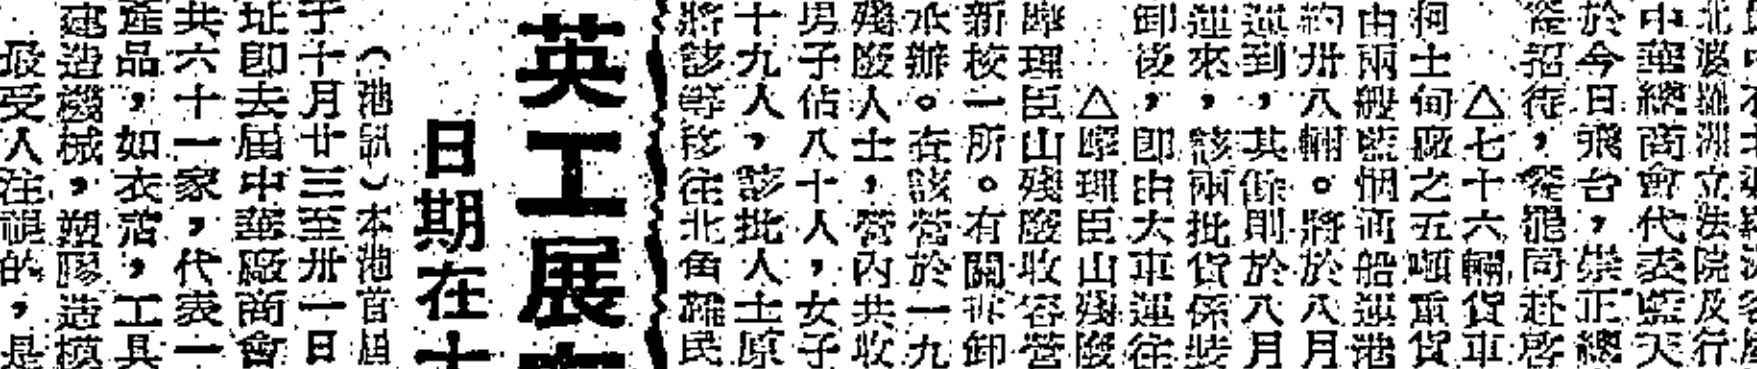 北婆羅洲立法院及行
中華總商會代表藍天
於今日飛台，崇正總
招待，罷同赴啓
△七十六輛貨車
柯士甸廠之五噸重貨
由兩艘藍烟囱船運港
約卅八輛。將於八月
運到，其餘則於八月
運來，該兩批貨係裝
卸後，即由大車運往
△摩理臣山殘廢
摩理臣山殘廢收容營
新核一所。有關拆卸
承辦。在該營於一九
殘廢人士，營內共收
男子佔八十人，女子
十九人，該批人士原
將該等移往北角難民
英工展
日期在十
（港訊）本港首屆
于十月廿三至卅一日
址即去屆中華廠商會
共六十一家，代表一
產品，如衣，工具
建造機械，塑膠造模
最受人注視的，是